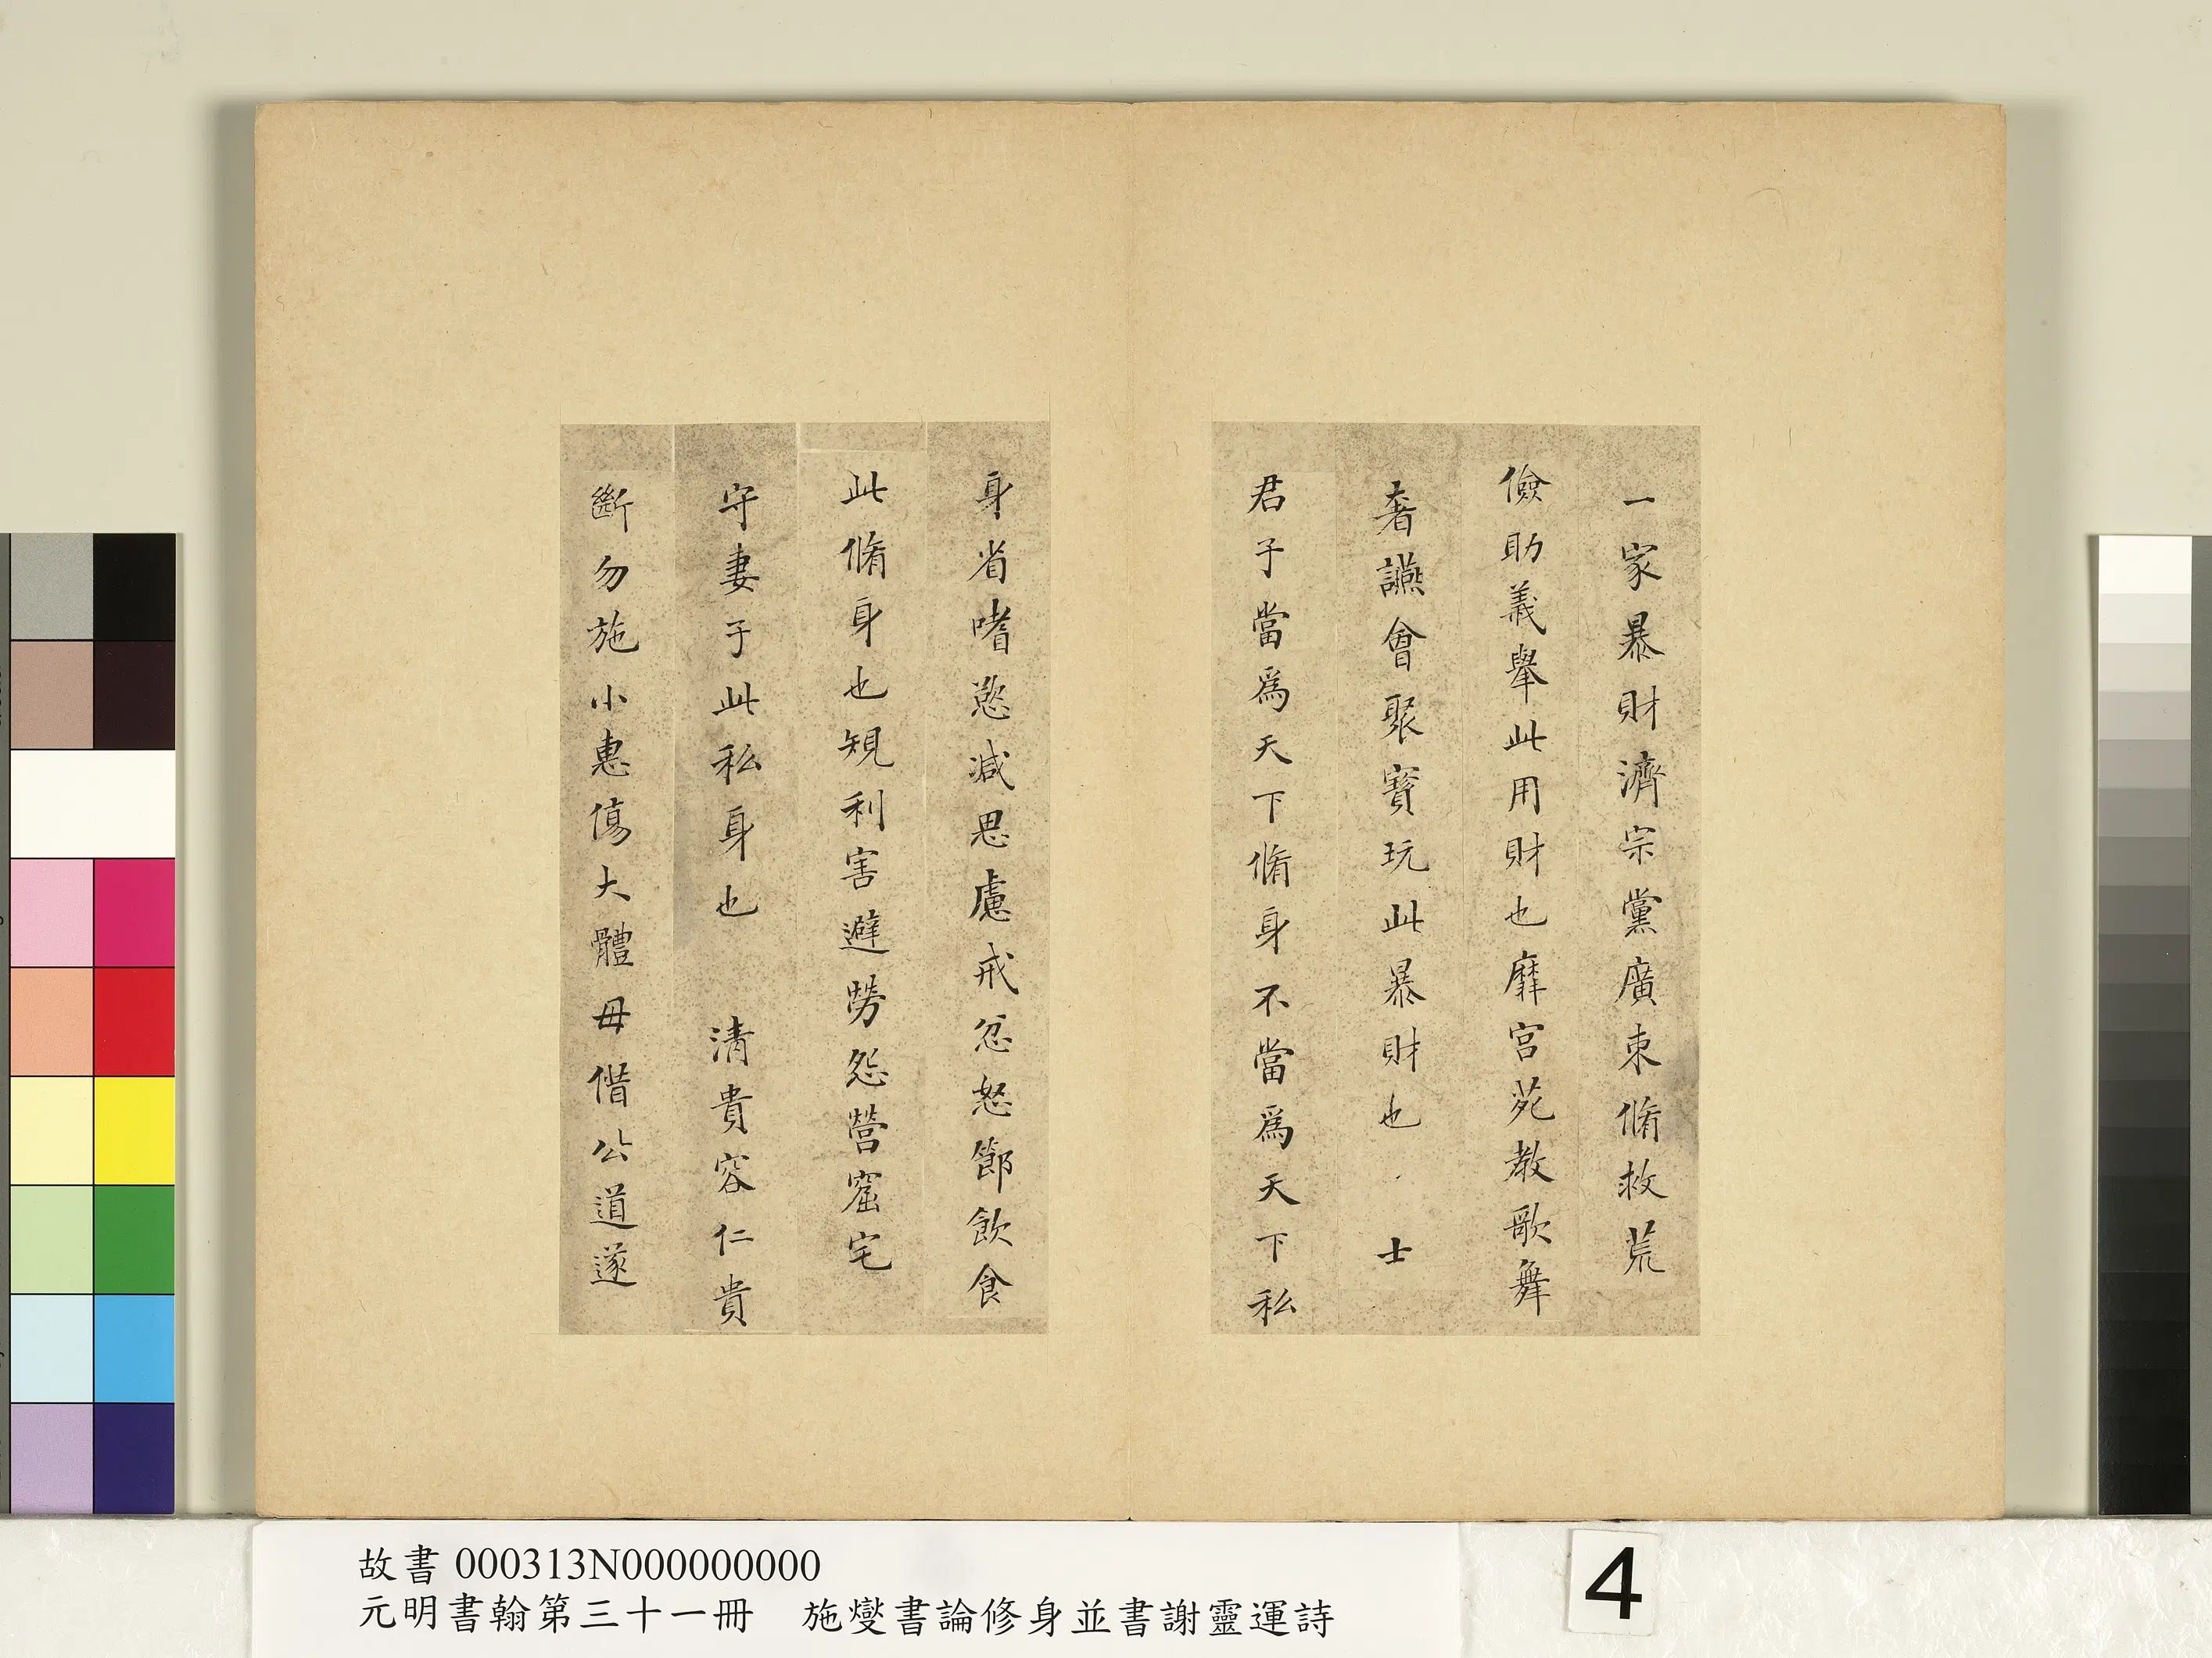 一家暴財濟宗黨廣束脩救荒
儉助義舉此用財也靡宮苑教歌舞
奢讌會聚寶玩此暴財也　士
君子當爲天下脩身不當爲天下私
身省嗜慾減思慮戒忿怒節飲食
此脩身也規利害避勞怨營窟宅
守妻子此私身也　清貴容仁貴
斷勿施小惠傷大體毋借公道遂
故書 000313N000000000
元明書翰第三十一冊　施燮書論修身並書謝靈運詩
4